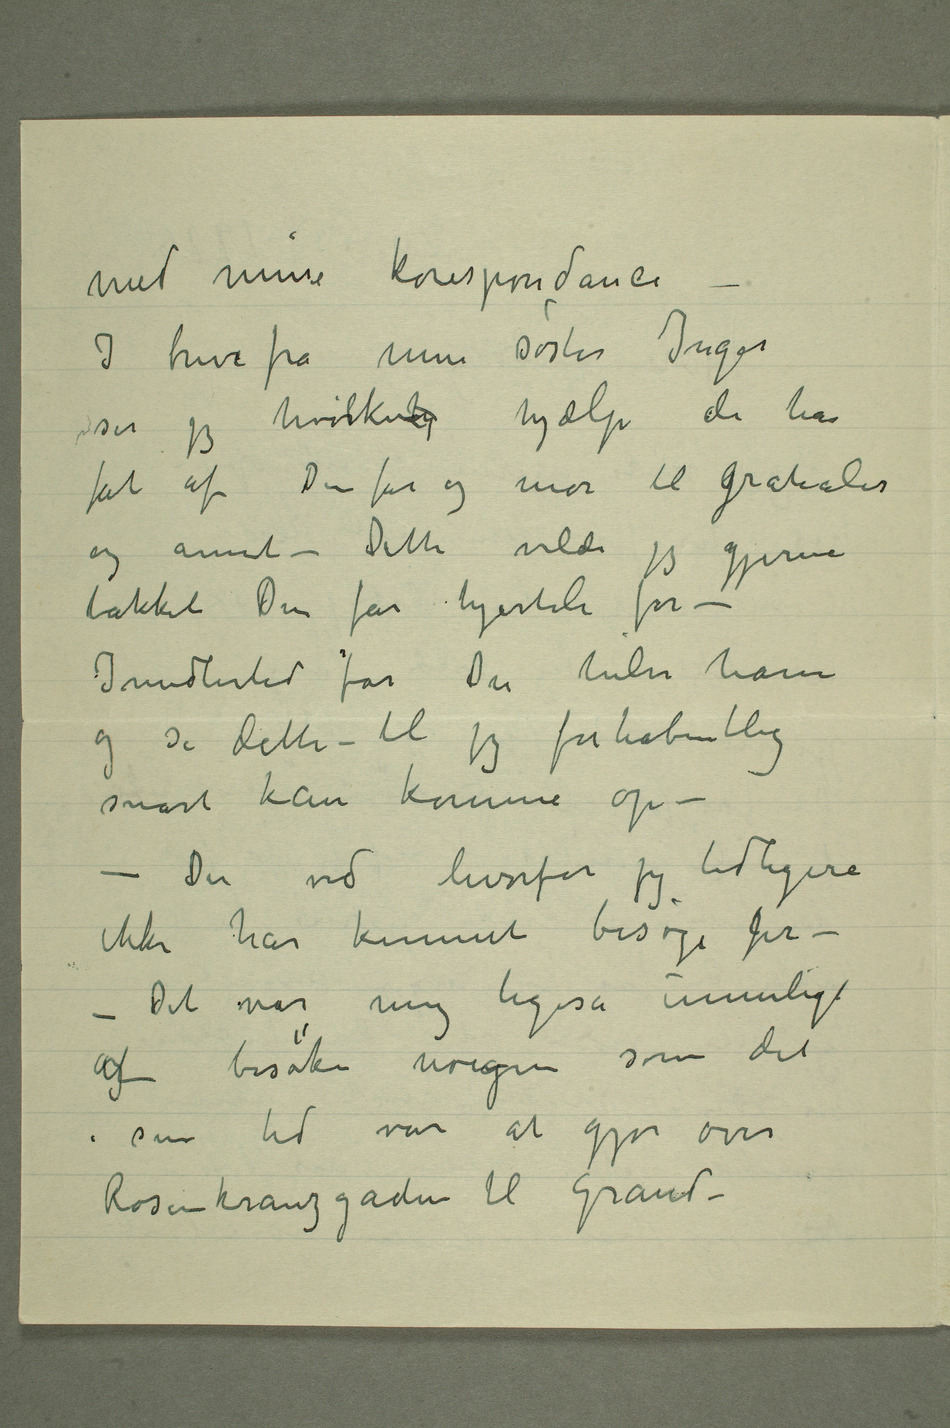 med mine korespondance –
I breve fra min søster Inger
ser jg hvilken hjælp de har
fåt af Din far og mor til gratialer
og annet – Dette vilde jg gjerne
takket Din far hjerteli for –
Imidlertid får Du hilse ham
og si dette – til jg forhåbentlig
snart kan komme op –
– Du ved hvorfor jg tidligere
ikke har kunnet besøge Jer –
– Det var mig ligeså umuligt
af besøke noigen som det
i sin tid var at gjør over
Rosenkranzgaden til Grand –